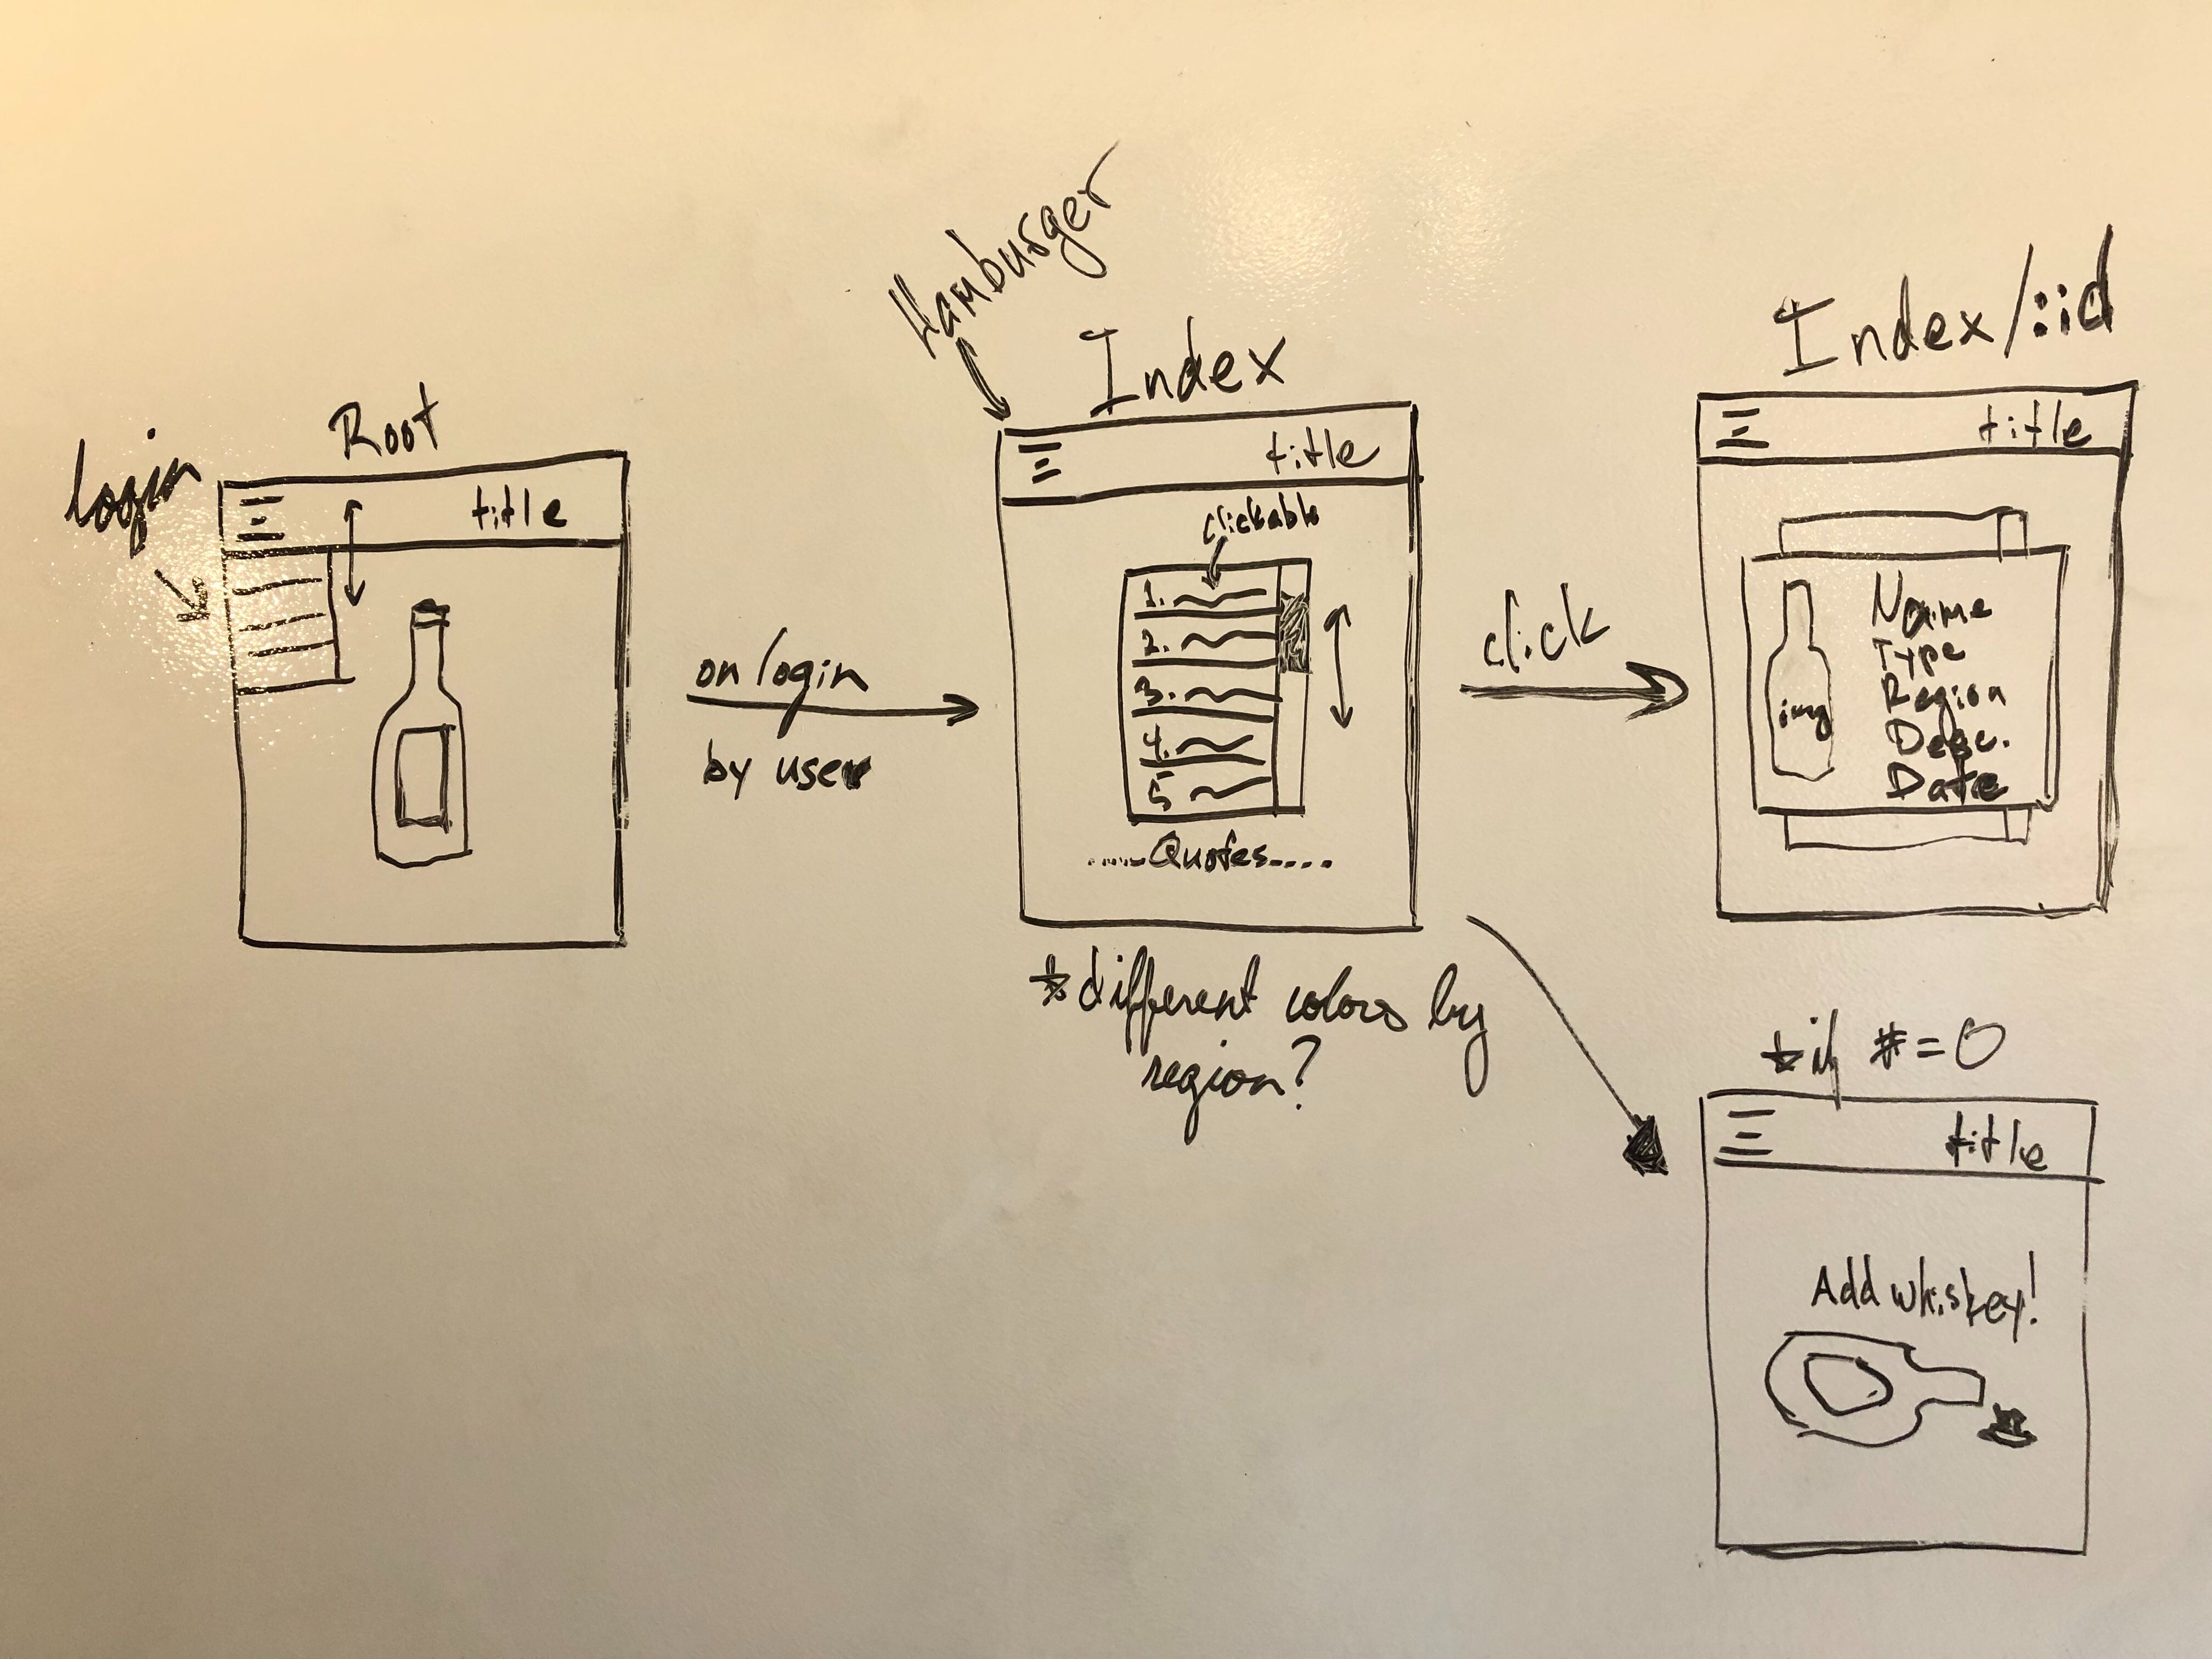 Root
login
title
on login
by user
Hamburger
Index
title
clickable
1.
2.
3.
4.
5
.....Quotes....
*different colors by
region?
click
Index/:id
title
img
Name
Type
Region
Desc.
Date
*if #=0
title
Add whiskey!